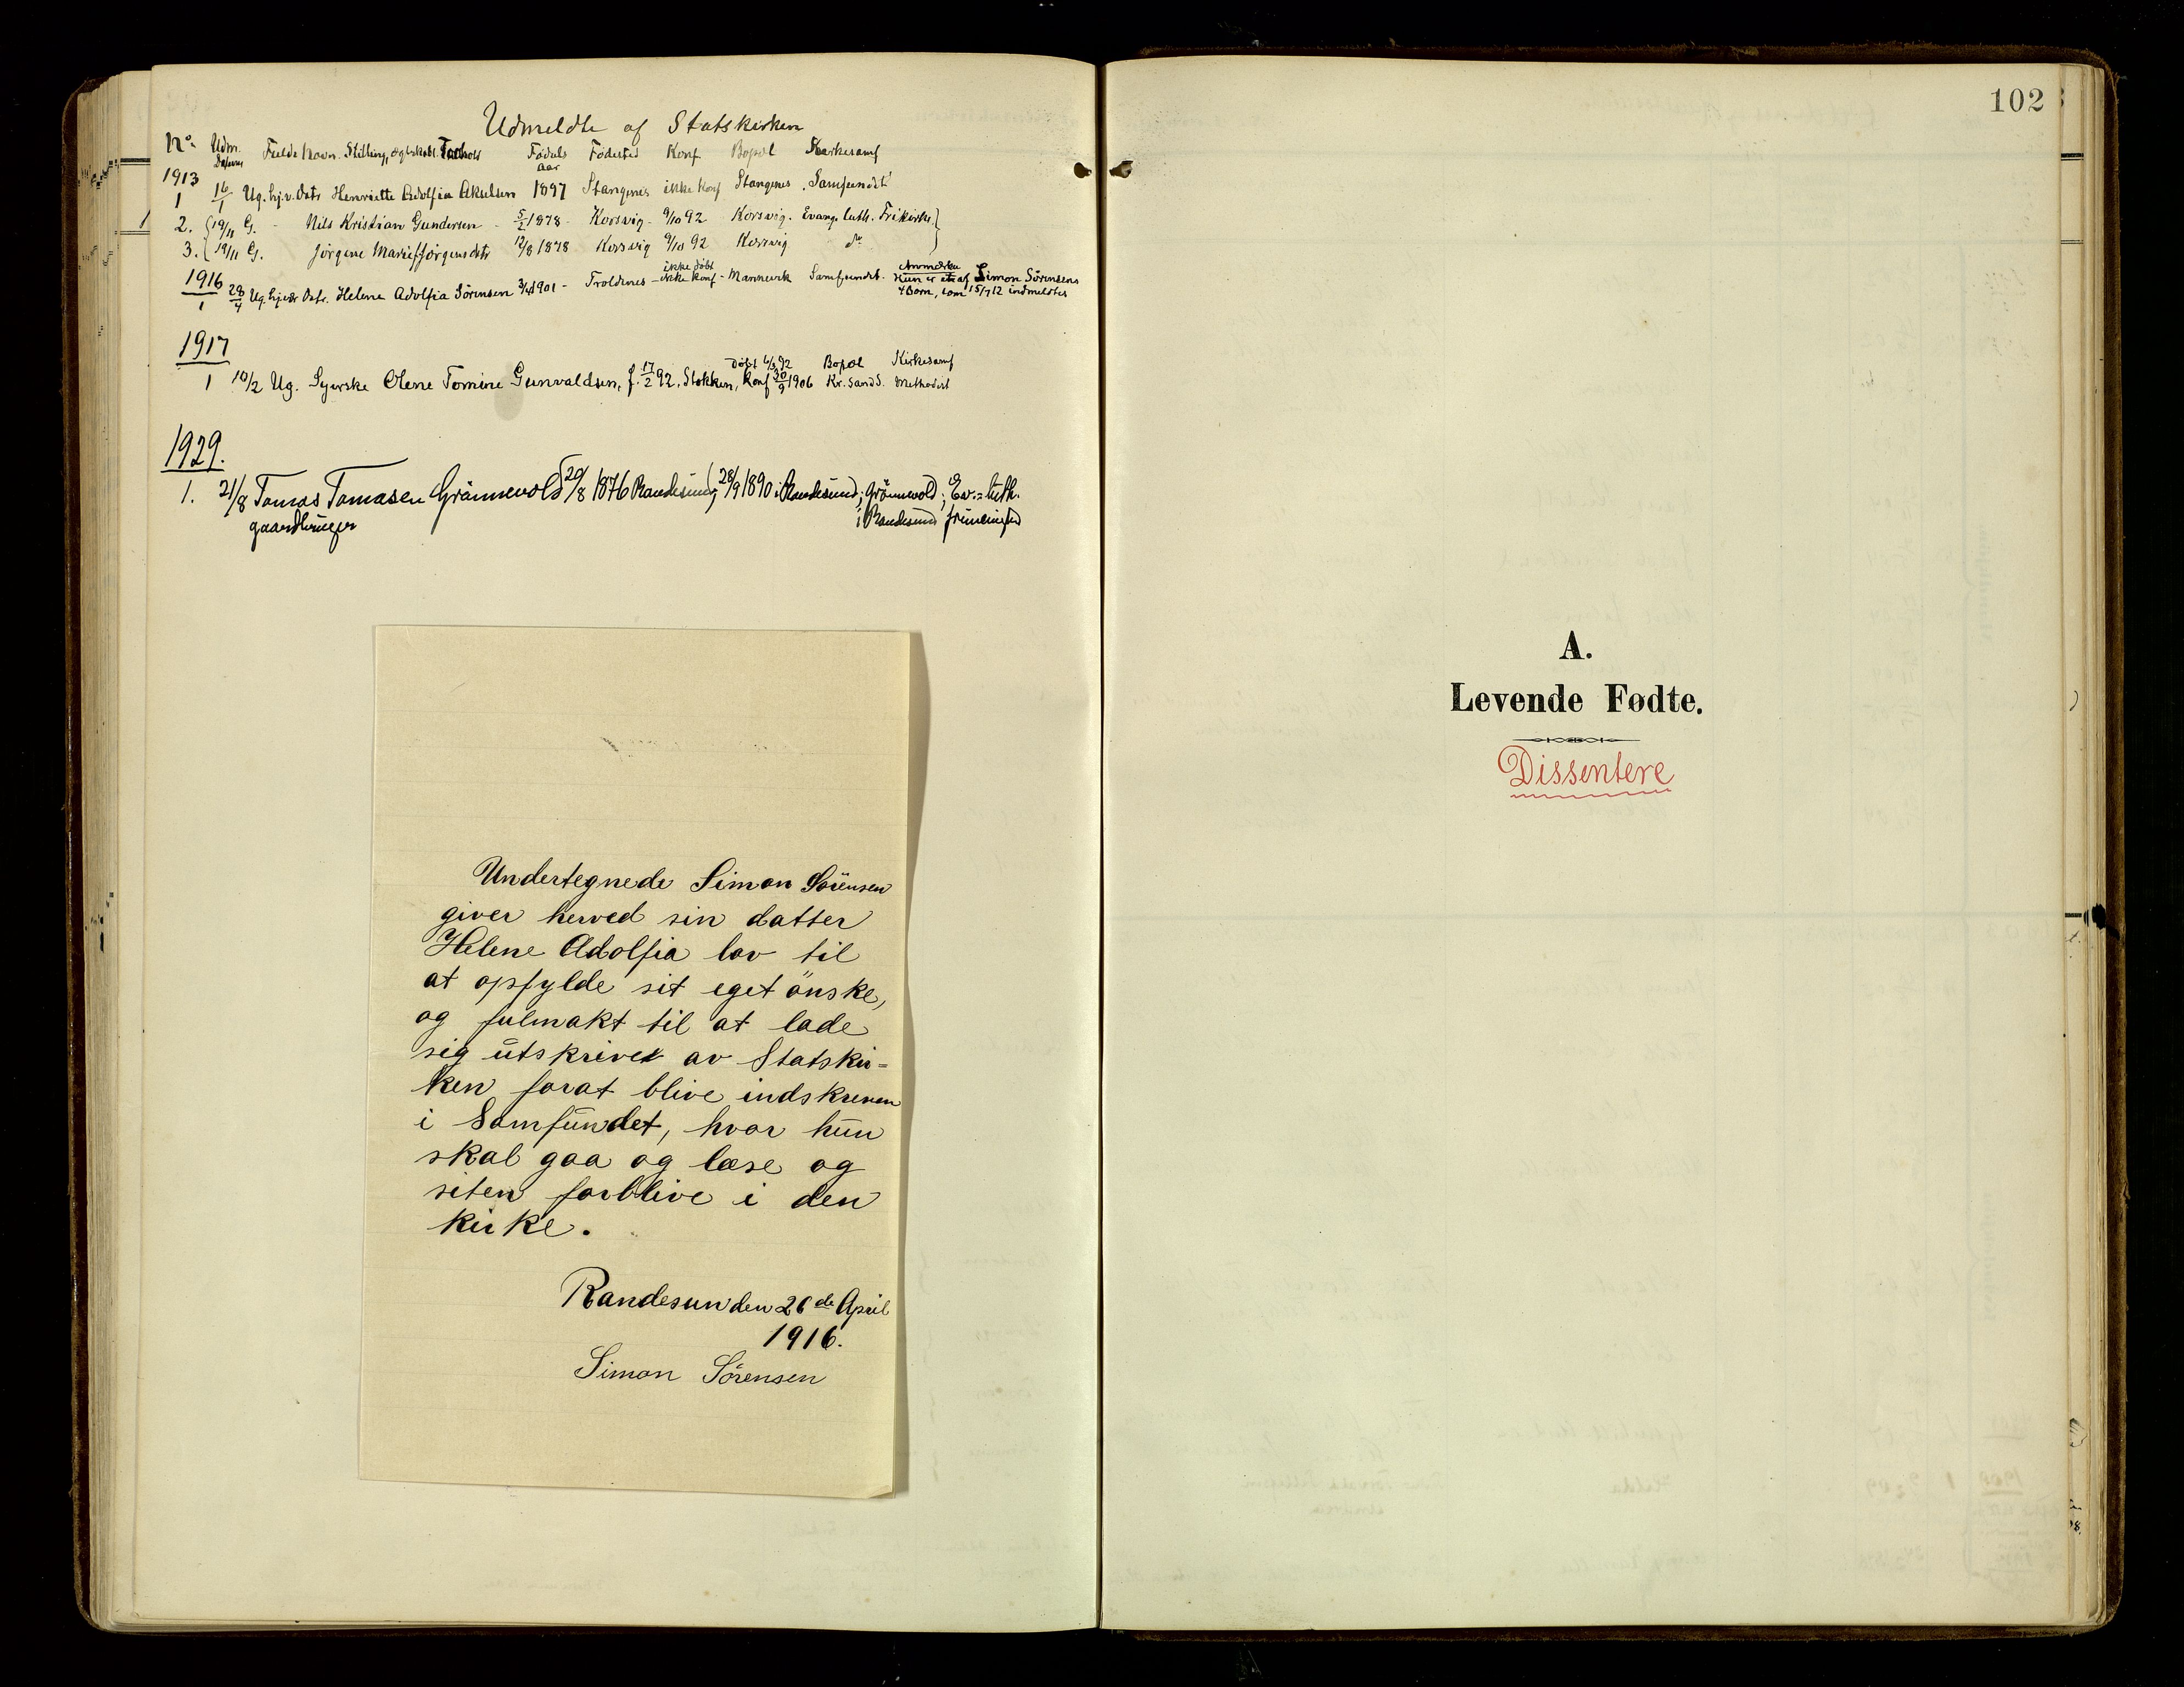 Udmeldte af Statskirken
No. Udm. Datum Fulde Navn, Stilling, Fødsels Aar Fødested Konf. Bopæl Kirkesamf
1913
1 16/1 Ug. hj.v. Datr Henriette Adolfia Akselsen 1897 Stangenes ikke konf Stangenes. Samfundet
2. 19/11 G. - Nils Kristian Gundersen - 5/2 1878 - Korsvig - 9/10 92 Korsvig. Evang. luth. Frikirke.
3. 19/11 G. Jörgine Marie Jörgensdtr 12/8 1878 Korsvig 9/10 92 Korsvig do
1916
1 28/4 Ug. hjv. Datr. Helene Adolfia Sörensen 3/4 1901 - Troldnes - ikke döbt ikke konf - Mannevik Samfundet. Anmærkn. Hun er et af Simon Sörensens
4 Børn, som 15/7 12 indmeldtes
1917
Döbt 6/3 92 Bopæl Kirkesamf
1 10/2 Ug. Syerske Olene Tomine Gunvaldsen, f. 17/2 92. Stokken, Konf 30/9 1906 Kr.sand S. Methodist
1929.
1. 21/8 Tomas Tomasen Grönnevold 20/8 1876 Randesund, 28/9 1890 i Randesund; Grönnevold; Ev.=luth.
gaardbruger i Randesund frimenighed
Undertegnede Simon Sörensen
giver herved sin datter
Helene Adolfia lov til
at opfylde sit eget önske,
og fulmakt til at lade
sig utskrive av Statskir=
ken forat blive indskreven
i Samfundet, hvor hun
skal gaa og læse og
siten forblive i den
kirke.
Randesun den 26de April
1916.
Simon Sörensen
102
A.
Levende Fødte.
Dissentere